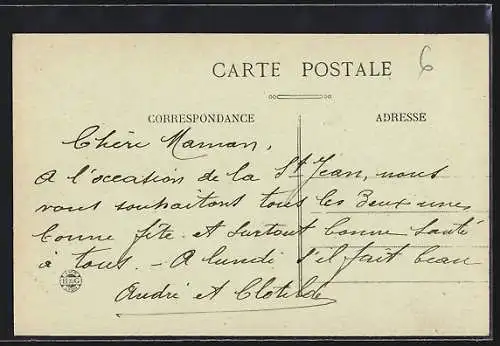 CARTE POSTALE
6
CORRESPONDANCE
ADRESSE
Chère Maman,
A l'occasion de la St Jean, nous
vous souhaitons tous les deux une
bonne fête et surtout bonne santé
à tous. — A lundi s'il fait beau
André et Clotilde